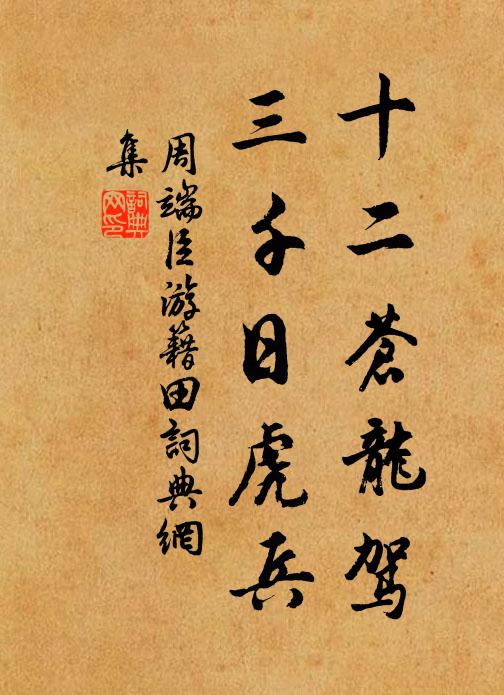 十二蒼龍駕
三千日虎兵
周端臣游籍田詞典網
集
詞典網印